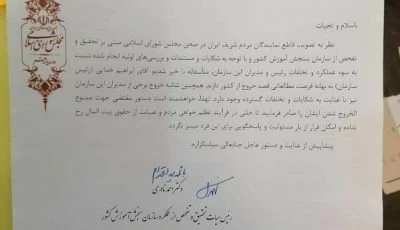 مجلس شورای اسلامی
باسلام و تحیات
نظر به تصویب قاطع نمایندگان مردم شریف ایران در صحن مجلس شورای اسلامی مبنی بر تحقیق و
تفحص از سازمان سنجش آموزش کشور و با توجه به شکایات و مستندات و بررسی‌های اولیه انجام شده نسبت
به سوء عملکرد و تخلفات رئیس و مدیران این سازمان، متأسفانه با خبر شدیم آقای ابراهیم خدایی (رئیس
سازمان) به بهانه فرصت مطالعاتی قصد خروج از کشور دارند. همچنین شائبه خروج برخی از مدیران این سازمان
نیز با عنایت به شکایات و تخلفات گسترده وجود دارد. لهذا، خواهشمند است دستور مقتضی جهت ممنوع
الخروج شدن ایشان را صادر فرمایید تا خللی در فرآیند، تظلم خواهی مردم و صیانت از حقوق بیت المال رخ
نداده و امکان فرار از بار مسئولیت و پاسخگویی برای این فرد میسر نگردد.
پیشاپیش از عنایت و دستور عاجل جنابعالی سپاسگزارم.
دکتر احمد نادری
رئیس هیات تحقیق و تفحص از عملکرد سازمان سنجش آموزش کشور